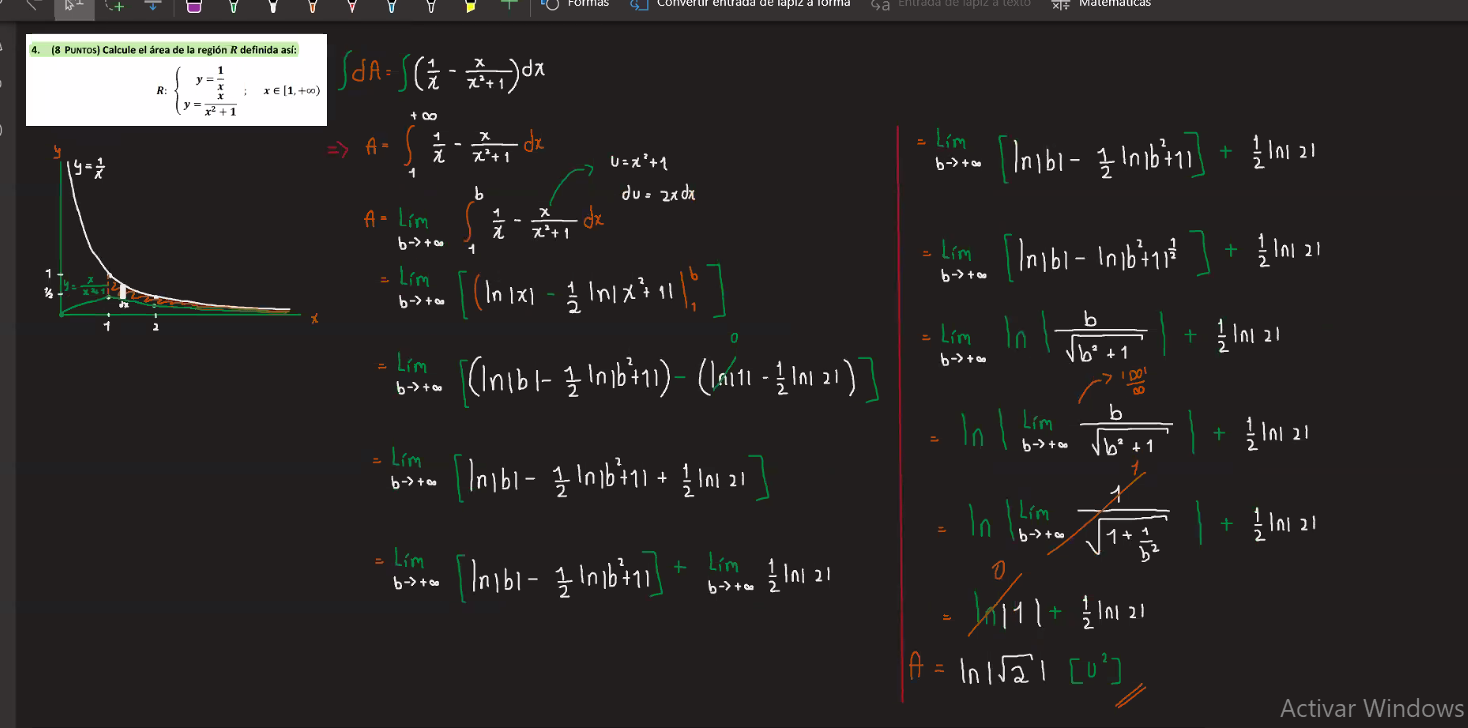 Formas Convertir entrada de lápiz a forma Entrada de lápiz a texto Matemáticas
4. (8 PUNTOS) Calcule el área de la región R definida así:
R: { y = 1/x
y = x/(x² + 1) ; x ∈ [1, +∞)
y
y = 1/x
1
½
y = x/(x²+1)
dx
1 2
x
∫dA = ∫(1/x - x/(x²+1))dx
=> A = ∫₁^{+∞} 1/x - x/(x²+1) dx
u = x²+1
du = 2x dx
A = Lím b->+∞ ∫₁^b 1/x - x/(x²+1) dx
= Lím b->+∞ [(ln|x| - 1/2 ln|x²+1| |₁^b ]
= Lím b->+∞ [(ln|b| - 1/2 ln|b²+1|) - (ln|1| - 1/2 ln|2|)]
0
= Lím b->+∞ [ln|b| - 1/2 ln|b²+1| + 1/2 ln|2|]
= Lím b->+∞ [ln|b| - 1/2 ln|b²+1|] + Lím b->+∞ 1/2 ln|2|
= Lím b->+∞ [ln|b| - 1/2 ln|b²+1|] + 1/2 ln|2|
= Lím b->+∞ [ln|b| - ln|b²+1|^{1/2}] + 1/2 ln|2|
= Lím b->+∞ ln|b/√(b²+1)| + 1/2 ln|2|
-> '∞/∞'
= ln|Lím b->+∞ b/√(b²+1)| + 1/2 ln|2|
1
= ln|Lím b->+∞ 1/√(1 + 1/b²)| + 1/2 ln|2|
0
= ln|1| + 1/2 ln|2|
A = ln|√2| [U²]
Activar Windows